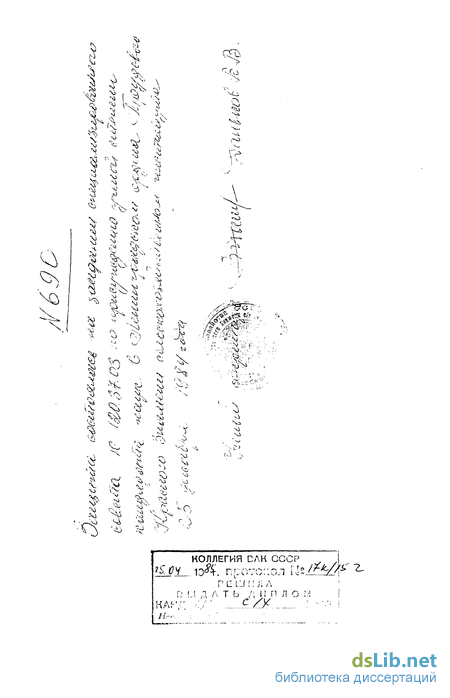 N 690
Защита состоялась на заседании специализированного
совета К 120.37.03 по присуждению учёной степени
кандидата наук в Ленинградском ордена Трудового
Красного Знамени сельскохозяйственном институте
25 1984 года
Учёный секретарь
КОЛЛЕГИЯ ВАК СССР
15.04 1985. протокол № 17к/15
РЕШИЛА
ВЫДАТЬ ДИПЛОМ
КАНД. с/х
dsLib.net
библиотека диссертаций